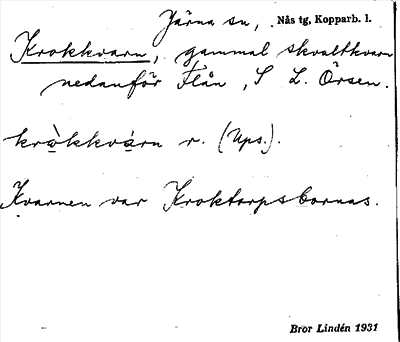 Järna sn, Nås tg, Kopparb. l.
Krokkvarn, gammal skvaltkvarn
nedanför Flån, S L. Örsen.
kròkkvárn r. (Ups.).
Kvarnen var Kroktorpsbornas.
Bror Lindén 1931